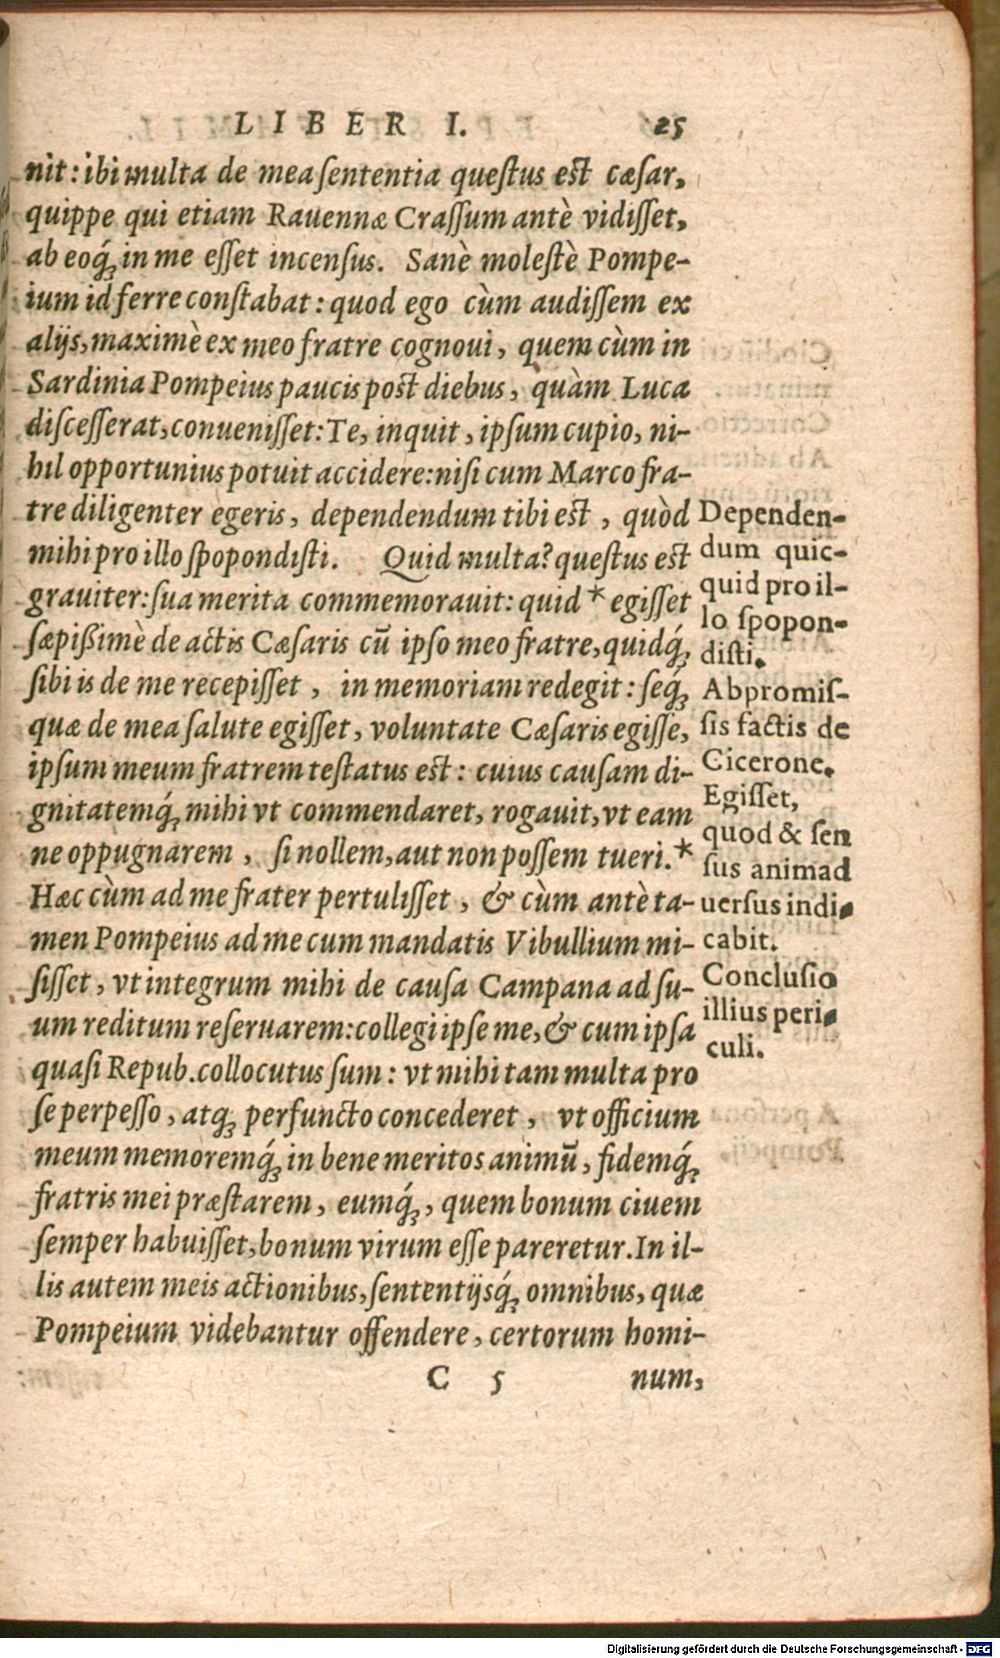 LIBER I. 25
nit: ibi multa de mea ſententia queſtus eſt cæſar,
quippe qui etiam Rauennæ Craſſum antè vidiſſet,
ab eoq́ꝫ in me eſſet incenſus. Sanè moleſtè Pompe-
ium id ferre conſtabat: quod ego cùm audiſſem ex
alijs, maximè ex meo fratre cognoui, quem cùm in
Sardinia Pompeius paucis poſt diebus, quàm Luca
diſceſſerat, conueniſſet: Te, inquit, ipſum cupio, ni-
hil opportunius potuit accidere: niſi cum Marco fra-
tre diligenter egeris, dependendum tibi eſt, quòd
mihi pro illo ſpopondiſti. Quid multa? queſtus eſt
grauiter: ſua merita commemorauit: quid * egiſſet
ſæpißimè de actis Cæſaris cū ipſo meo fratre, quidq́ꝫ
ſibi is de me recepiſſet, in memoriam redegit: ſeq́ꝫ
quæ de mea ſalute egiſſet, voluntate Cæſaris egiſſe,
ipſum meum fratrem teſtatus eſt: cuius cauſam di-
gnitatemq́ꝫ mihi vt commendaret, rogauit, vt eam
ne oppugnarem, ſi nollem, aut non poſſem tueri.*
Hæc cùm ad me frater pertuliſſet, & cùm antè ta-
men Pompeius ad me cum mandatis Vibullium mi-
ſiſſet, vt integrum mihi de cauſa Campana ad ſu-
um reditum reſeruarem: collegi ipſe me, & cum ipſa
quaſi Repub. collocutus ſum: vt mihi tam multa pro
ſe perpeſſo, atqꝫ perfuncto concederet, vt officium
meum memoremq́ꝫ in bene meritos animū, fidemq́ꝫ
fratris mei præſtarem, eumq́ꝫ, quem bonum ciuem
ſemper habuiſſet, bonum virum eſſe pareretur. In il-
lis autem meis actionibus, ſententijsq́ꝫ omnibus, quæ
Pompeium videbantur offendere, certorum homi-
C 5 num,
Dependen-
dum quic-
quid pro il-
lo ſpopon-
diſti.
Ab promiſ-
ſis factis de
Cicerone.
Egiſſet,
quod & ſen
ſus animad
uerſus indi-
cabit.
Concluſio
illius peri-
culi.
Digitalisierung gefördert durch die Deutsche Forschungsgemeinschaft - DFG